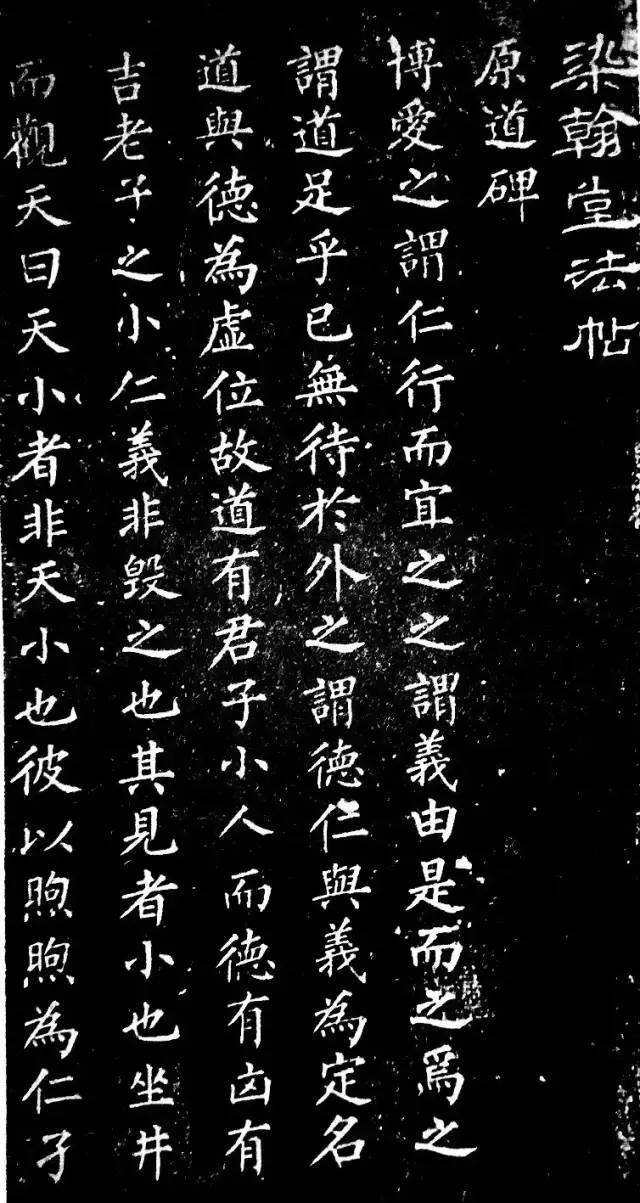 染翰堂法帖
原道碑
博愛之謂仁行而宜之之謂義由是而之爲之
謂道足乎已無待於外之謂德仁與義為定名
道與德為虛位故道有君子小人而德有凶有
吉老子之小仁義非毁之也其見者小也坐井
而觀天曰天小者非天小也彼以煦煦為仁孑